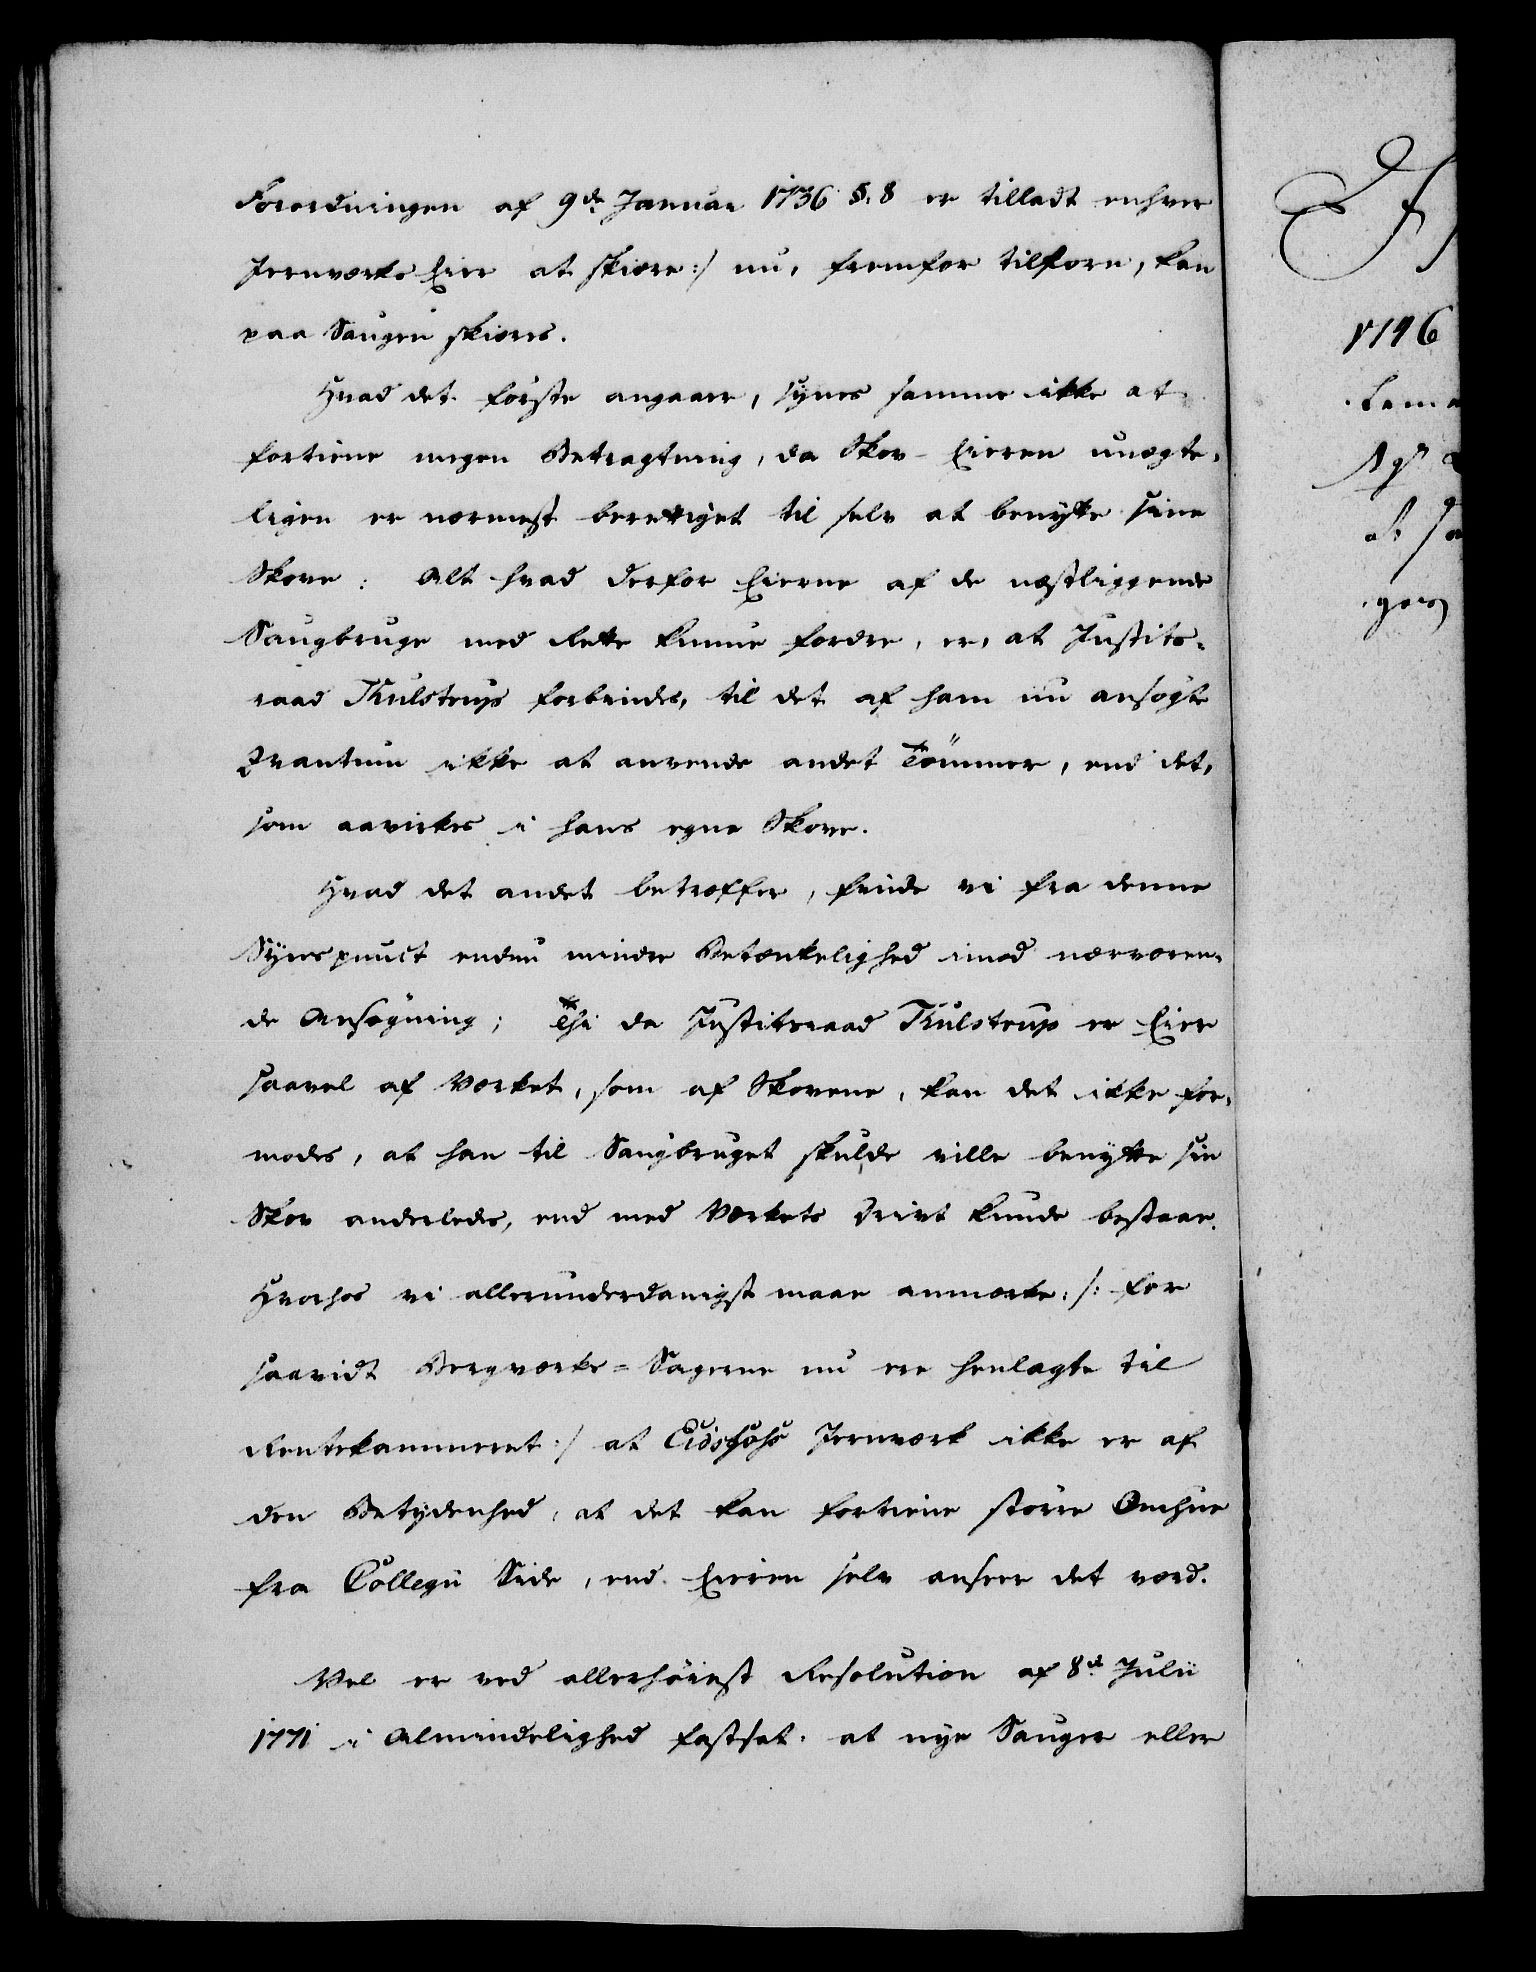 Forordningen af 9de Januar 1736 §. 8 er tilladt enhver
Jernværks Eier at skiære :/ nu, fremfor tilforn, kan
paa Saugen skiæres.
Hvad det første angaaer, synes samme ikke at
fortiene nogen Betragtning, da Skov-Eieren unægte-
ligen er nærmest berettiget til selv at benytte sine
Skove: Alt hvad derfor Eierne af de næstliggende
Saugbruge med Rette kunne fordre, er, at Justits-
raad Thulstrup forbindes, til det af ham nu ansøgte
Qvantum ikke at anvende andet Tömmer, end det,
som avirkes i hans egne Skove.
Hvad det andet betræffer, finde vi fra denne
Synspunct endnu mindre Betænkelighed imod nærværen-
de Ansøgning; Thi da Justitsraad Thulstrup er Eier
saavel af Værket, som af Skovene, kan det ikke for-
modes, at han til Saugbruget skulde ville benytte sin
Skov anderledes, end med Værkets Drivt kunde bestaae.
Hvorhos vi allerunderdanigst maae anmærke: /: for
saavidt Bergværks-Sagerne nu ere henlagte til
Rentekammeret :/ at Eidsfos Jernværk ikke er af
den Betydenhed, at det kan fortiene större Omhue
fra Collegii Side, end Eieren selv anseer det værd.
Vel er ved allerhöiest Resolution af 8de Julii
1771 i Almindelighed fastsat, at nye Sauger eller